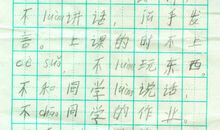 不luàn讲话，所手发
言。上课的时不上
cè suǒ，不luàn玩东西。
不和同学luàn说话，
不chāo同学的作业。